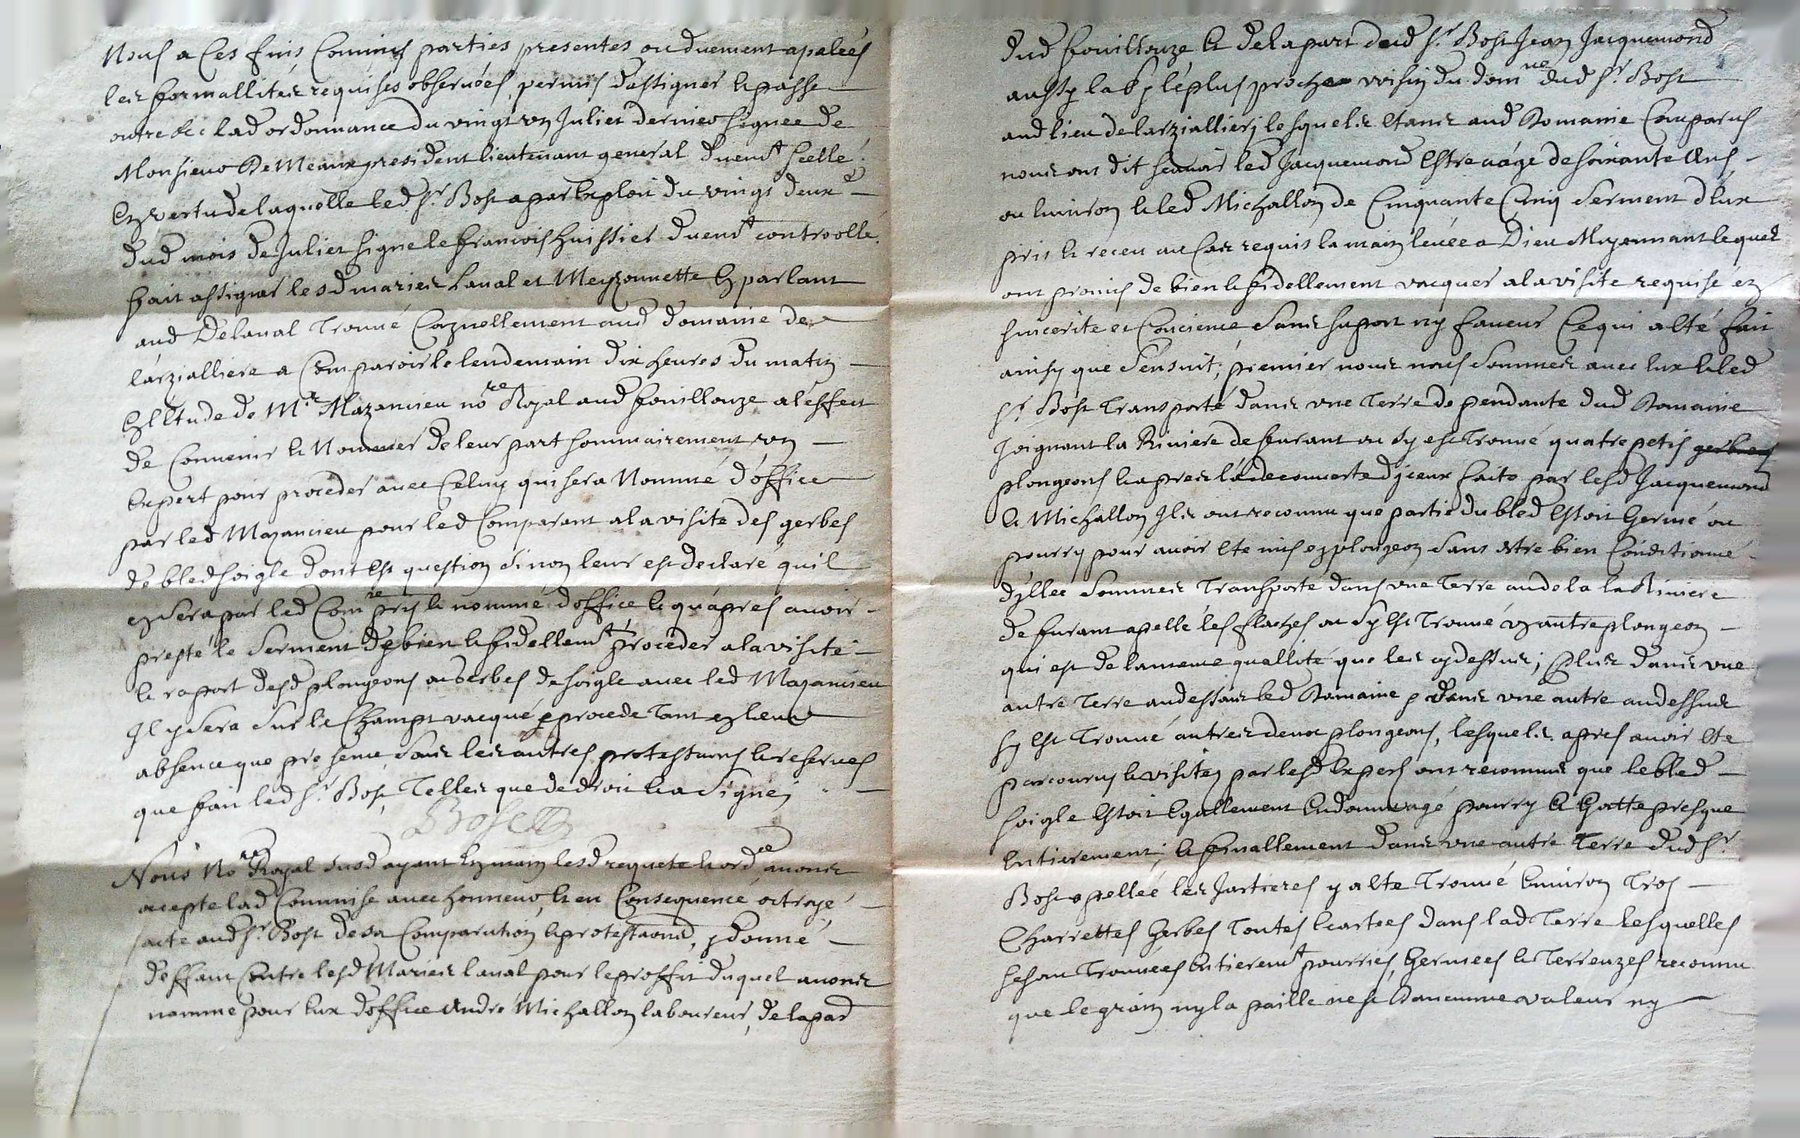 Nous a Ces fins Commis parties presentes ou duement apalées
les formallites requises observées permis d'assigner & passer
outre &c lad ordonnance du vingt un Juilet dernier signee de
Monsieur De Meaux president lieutenant general duem.t scellé
En vertu de laquelle led s.r Bost a par Exploit du vingt deux.e
dud mois de Juilet signé le francois huissier duem.t controollé
fait assigner lesd mariez Laual et Meyzonnette En parlant
aud Delaual Trouué Corpellement aud domaine de
larzialliere a Comparoir le lendemain dix heures du matin
En l'Etude de M.e Mazancieu no.re Royal aud fouillouze a l'effect
de Conuenir & Nommer de leur part sommairement un
Expert pour proceder auec Celuy qui sera Nommé d'office
par led Mazancieu pour led Comparant a la visite des gerbes
de bled soigle dont est question sinon leur est declaré qu'il
en sera par led Com.re pris & nommé d'office & qu'apres auoir
presté le serment de bien & fidellem.t proceder a la visite
& raport desd plongeons ou Gerbes de soigle auec led Mazancieu
Il y sera sur le Champt vacqué & procedé Tant en leur
absence que presence, sans les autres protestaons & reserues
que fait led s.r Bost Telles que de droit & a signé
Bost
Nous No.re Royal susd ayant En main lesd requete & ord.ce auons
acepté lad Commise auec honneur, & en Consequence octroyé
acte aud s.r Bost de sa Comparution & protestaond, & donné
deffaut Contre lesd Mariez laual pour le proffit duquel auons
nommé pour Eux d'office André Michallon laboureur, de la par
dud fouillouze & de la part dud s.r Bost Jean Jacquemond
aussy lab.r le plus proche voisin du dom.ne dud s.r Bost
aud lieu de larzialliere lesquels Etans aud Domaine Comparus
nous ont dit scauoir led Jacquemond Estre aagé de soixante Ans
ou Enuiron & led Michallon de Cinquante Cinq serment d'Eux
pris & receu au Cas requis la main leuée a Dieu Moyennant lequel
ont promis de bien & fidellement vacquer a la visite requise en
sincerité et Concience sans suport ny faueur Ce qui a Eté fait
ainsy que s'ensuit; premier nous nous sommes auec Eux & led
s.r Bost Transporté dans une Terre dependante dud Domaine
Joignant la Riuiere de furant ou sy est Trouué quatre petis gerbes
plongeons & apres la decouuerte d'jceux faite par lesd Jacquemond
& Michallon Ils ont reconnu que partie du bled Estoit Germé ou
pourry pour auoir Eté mis en plongeon sans estre bien Conditionné
d'jllec sommes Transporté dans une Terre audela la Riuiere
de furant apellé les flaches ou sy Est Trouué un autre plongeon
qui est de la meme quallité que les cydessus; Plus dans une
autre Terre audessous led Domaine & dans une autre audessus
sy Est Trouué autres deux plongeons, lesquels apres auoir Eté
parcourus & visitez par lesd Expers ont reconnus que le bled
soigle Estoit Egallement Endommagé pourry & Gatté presque
Entierement; & finallement dans une autre Terre dud s.r
Bost apellée les Jartieres y a Eté Trouué Enuiron Trois
Charrettes Gerbes Toutes Ecartées dans lad Terre lesquelles
se sont Trouuees Entierem.t pourries, Germees & Terreuzes reconnu
que le grain ny la paille n'est D'aucunne valeur ny